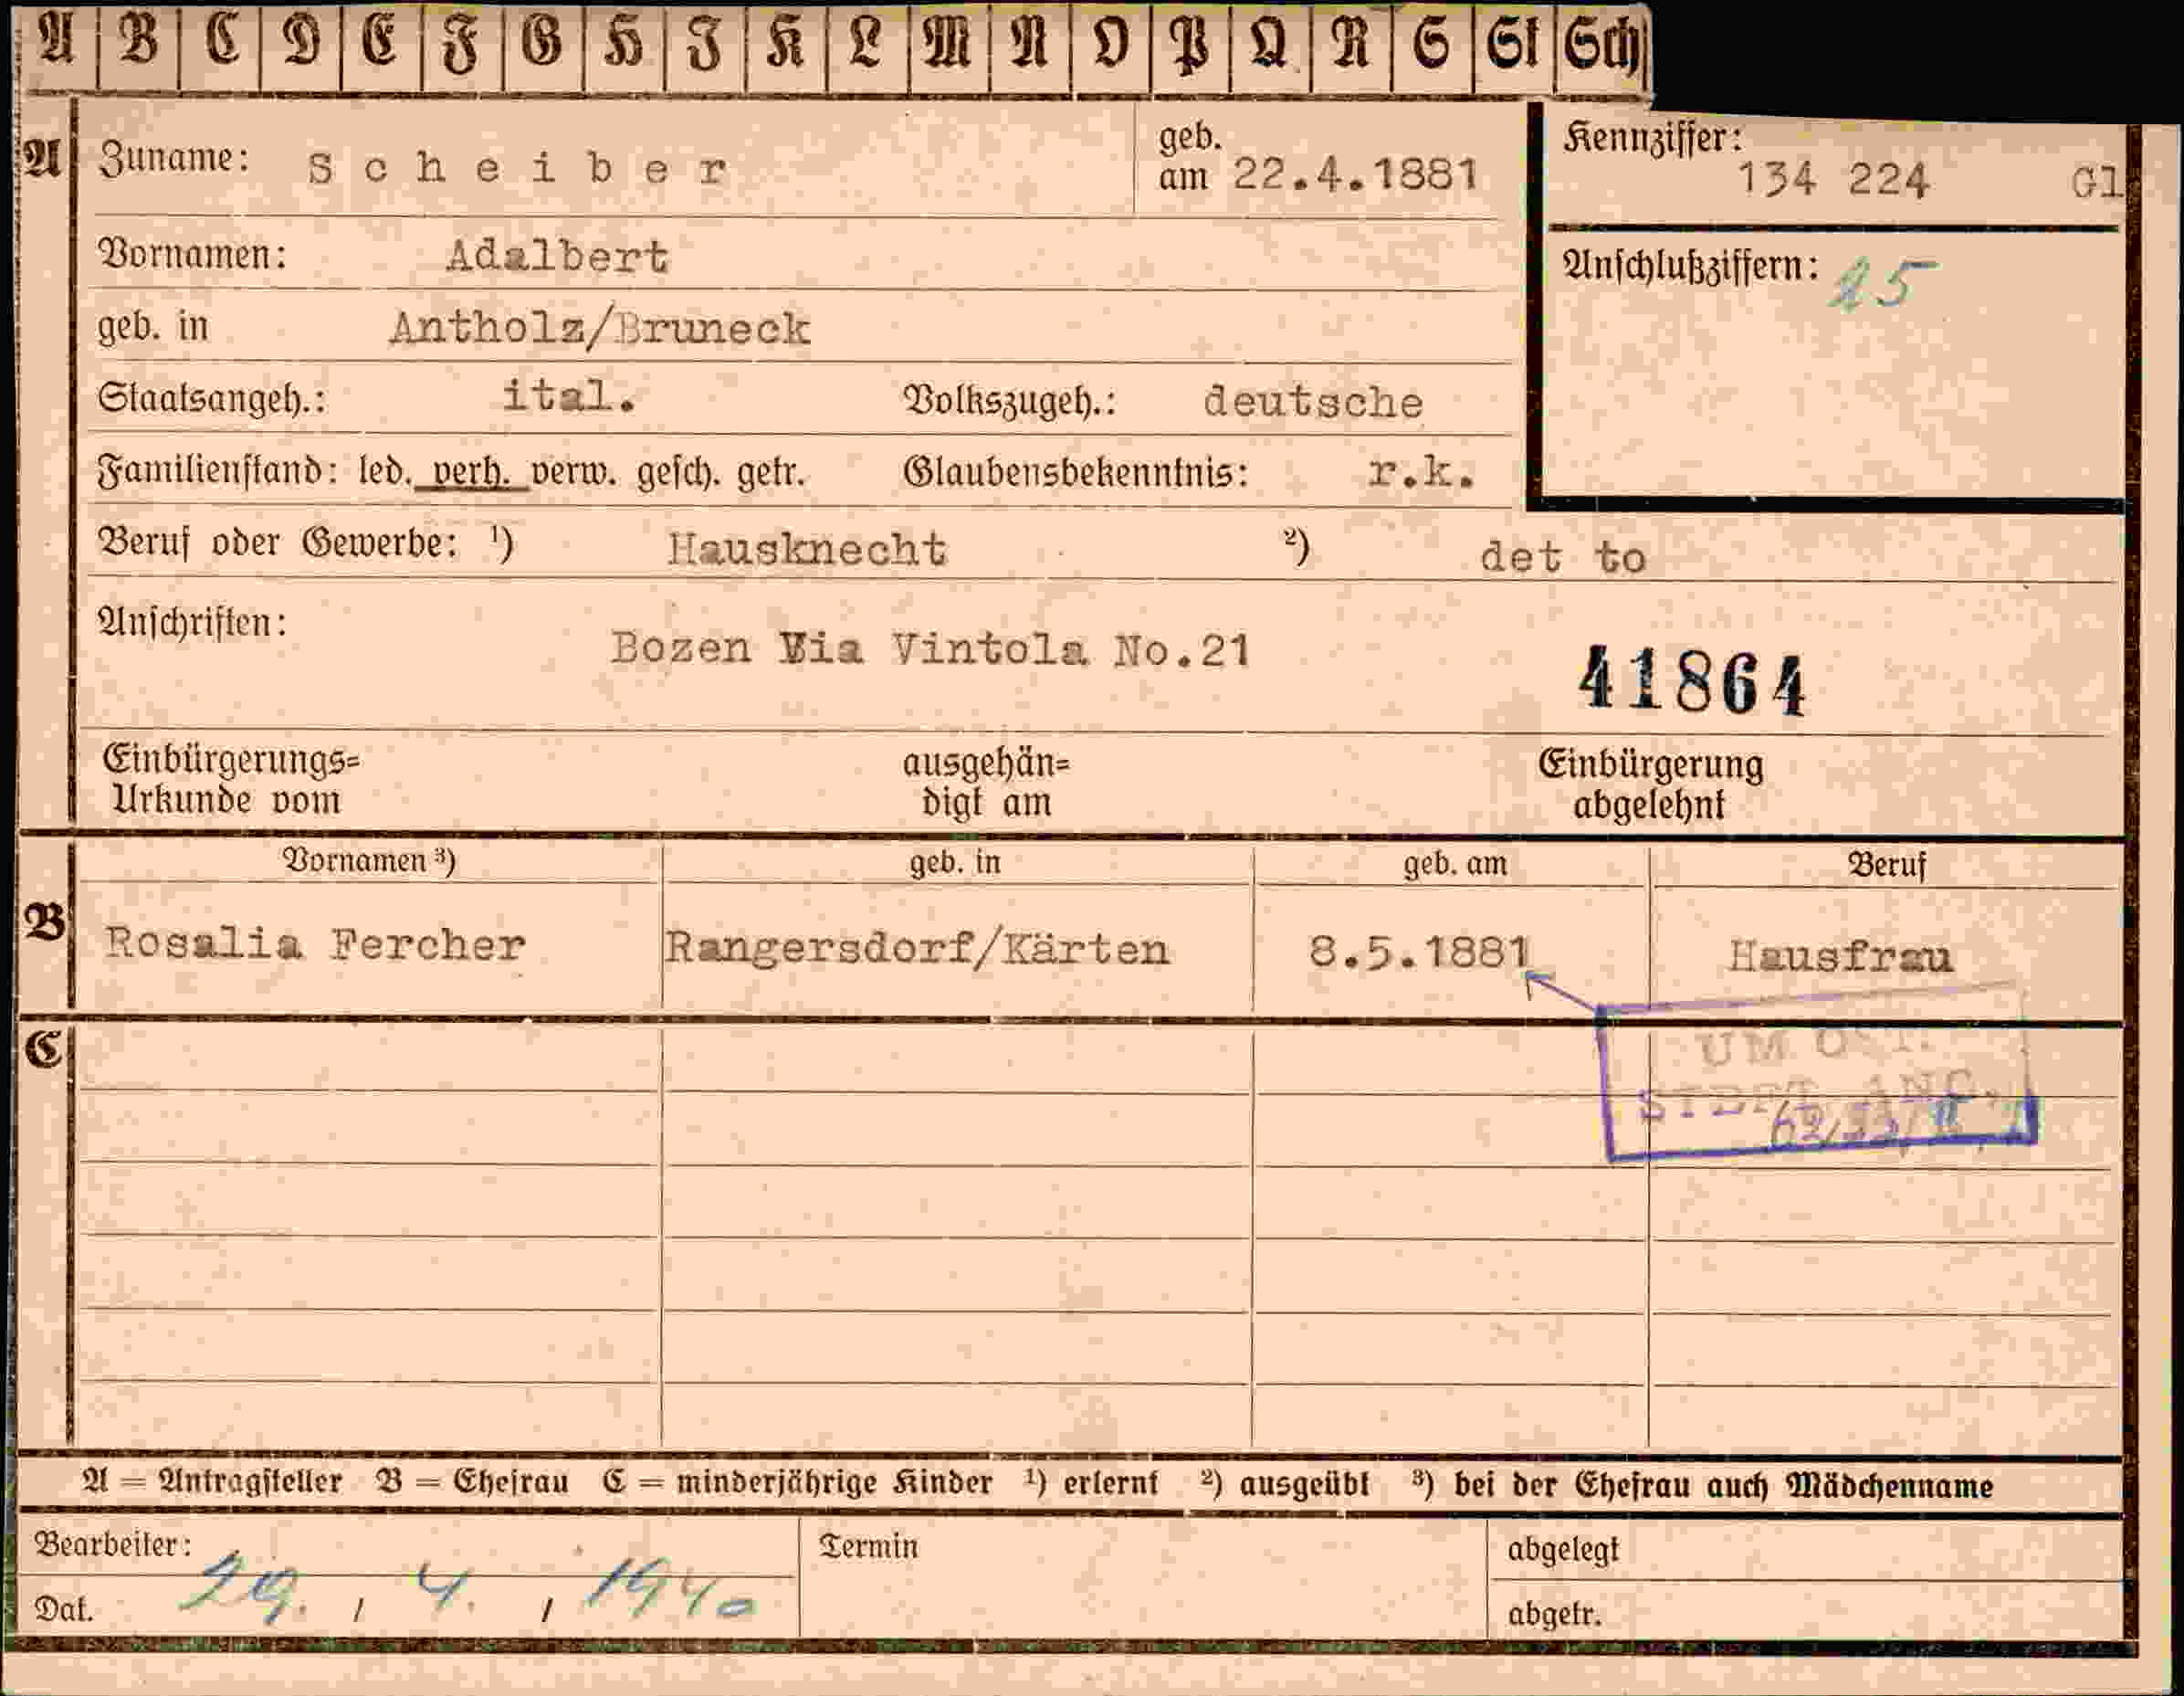 A B C D E F G H J K L M N O P Q R S St Sch
A Zuname: Scheiber geb. am 22.4.1881
Kennziffer: 134 224 Gl
Vornamen: Adalbert
Anschlußziffern: 25
geb. in Antholz/Bruneck
Staatsangeh.: ital. Volkszugeh.: deutsche
Familienstand: led. verh. verw. gesch. getr. Glaubensbekenntnis: r.k.
Beruf oder Gewerbe: ¹) Hausknecht ²) det to
Anschriften: Bozen Via Vintola No.21
41864
Einbürgerungs=
Urkunde vom
ausgehän=
digt am
Einbürgerung
abgelehnt
Vornamen ³) geb. in geb. am Beruf
B Rosalia Fercher Rangersdorf/Kärten 8.5.1881 Hausfrau
C
UM
A = Antragsteller B = Ehefrau C = minderjährige Kinder ¹) erlernt ²) ausgeübt ³) bei der Ehefrau auch Mädchenname
Bearbeiter: Termin abgelegt
Dat. 29. / 4. / 1940 abgetr.